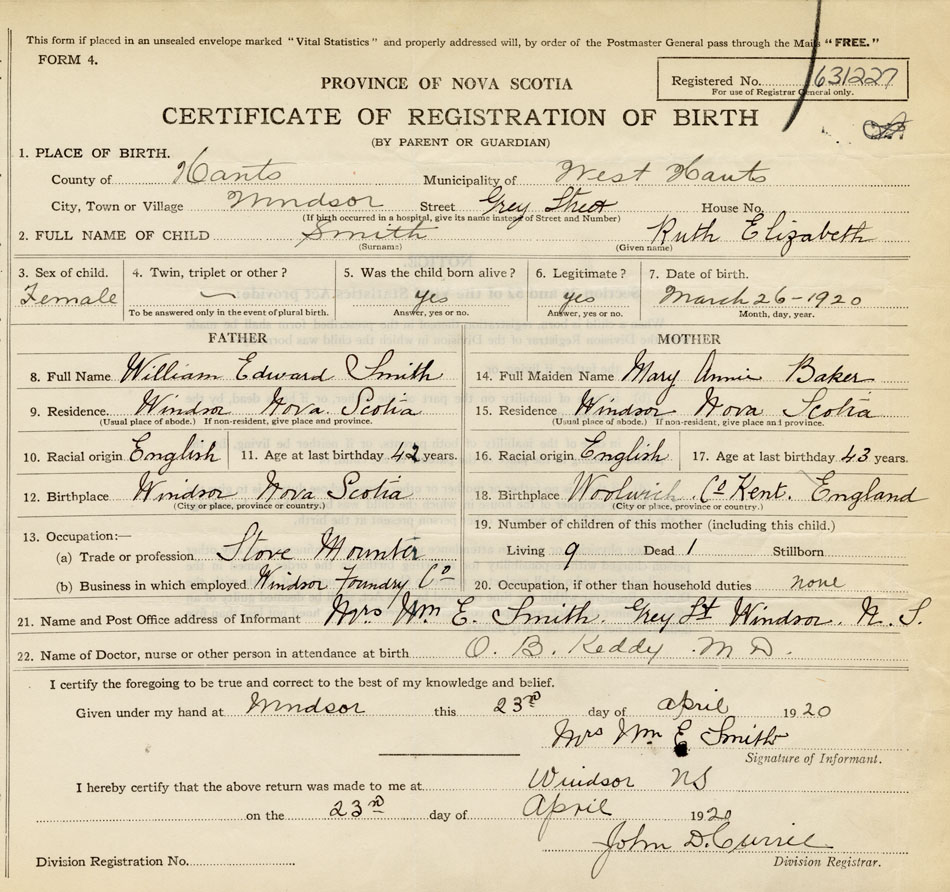 This form if placed in an unsealed envelope marked "Vital Statistics" and properly addressed will, by order of the Postmaster General pass through the Mails "FREE."
FORM 4.
Registered No. 631227
For use of Registrar General only.
PROVINCE OF NOVA SCOTIA
CERTIFICATE OF REGISTRATION OF BIRTH
(BY PARENT OR GUARDIAN)
1. PLACE OF BIRTH.
County of Hants Municipality of West Hants
City, Town or Village Windsor Street Grey Street House No.
(If birth occurred in a hospital, give its name instead of Street and Number)
2. FULL NAME OF CHILD Smith Ruth Elizabeth
(Surname) (Given name)
3. Sex of child. 4. Twin, triplet or other? 5. Was the child born alive? 6. Legitimate? 7. Date of birth.
Female — yes yes March 26-1920
To be answered only in the event of plural birth. Answer, yes or no. Answer, yes or no. Month, day, year.
FATHER MOTHER
8. Full Name William Edward Smith 14. Full Maiden Name Mary Annie Baker
9. Residence. Windsor Nova Scotia 15. Residence Windsor Nova Scotia
(Usual place of abode.) If non-resident, give place and province. (Usual place of abode.) If non-resident, give place and province.
10. Racial origin English 11. Age at last birthday 42 years. 16. Racial origin English 17. Age at last birthday 43 years.
12. Birthplace Windsor Nova Scotia 18. Birthplace Woolwich. Co Kent. England
(City or place, province or country.) (City or place, province or country.)
13. Occupation:— 19. Number of children of this mother (including this child.)
(a) Trade or profession Stove Mounter Living 9 Dead 1 Stillborn
(b) Business in which employed Windsor Foundry Co 20. Occupation, if other than household duties none
21. Name and Post Office address of Informant Mrs Wm E. Smith. Grey St Windsor. N. S.
22. Name of Doctor, nurse or other person in attendance at birth O. B. Keddy. M D.
I certify the foregoing to be true and correct to the best of my knowledge and belief.
Given under my hand at Windsor this 23rd day of April 1920
Mrs Wm E Smith
Signature of Informant.
I hereby certify that the above return was made to me at Windsor NS
on the 23rd day of April 1920
John D. Currie
Division Registrar.
Division Registration No.